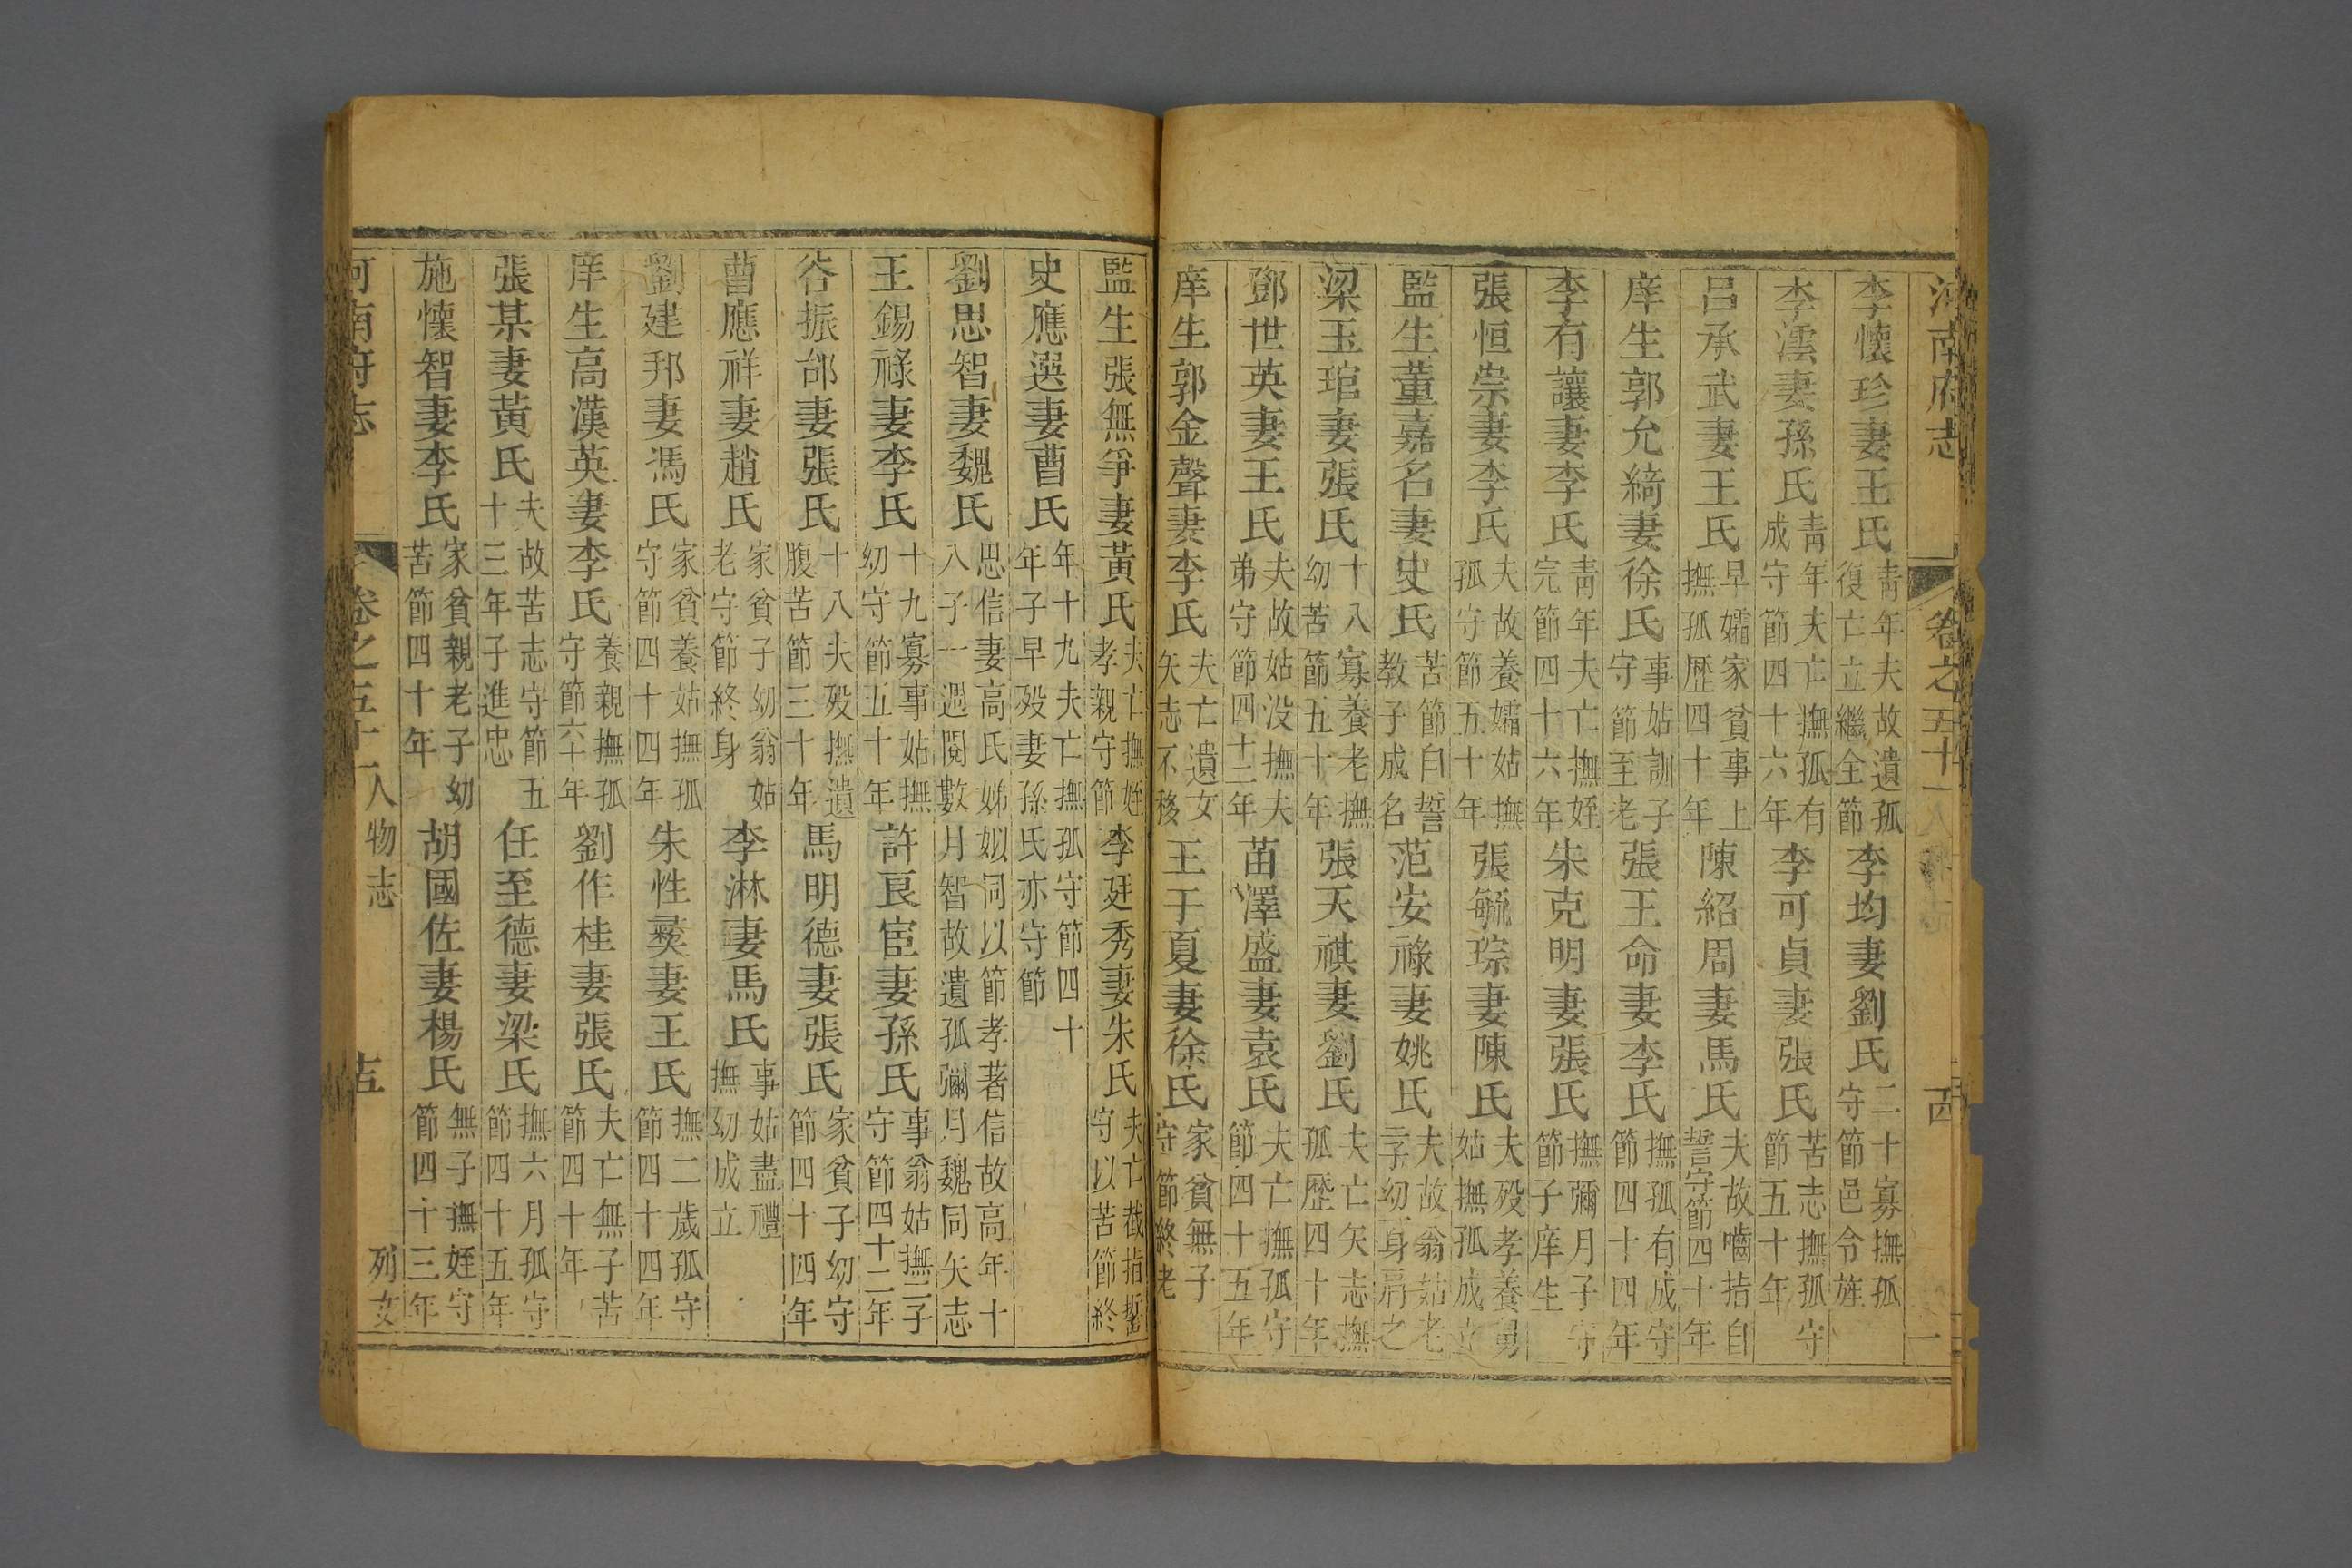 河南府志 卷之五十一
李懷珍妻王氏 青年夫故遺孤復亡立繼全節 李均妻劉氏 二十寡撫孤守節邑令旌
李澐妻孫氏 青年夫亡撫孤有成守節四十六年 李可貞妻張氏 苦志撫孤守節五十年
呂承武妻王氏 早孀家貧事上撫孤歷四十年 陳紹周妻馬氏 夫故嚙指自誓守節四十年
庠生郭允綺妻徐氏 事姑訓子守節至老 張王命妻李氏 撫孤有成守節四十四年
李有讓妻李氏 青年夫亡撫姪完節四十六年 朱克明妻張氏 撫彌月子守節子庠生
張恒崇妻李氏 夫故養孀姑撫孤守節五十年 張毓琮妻陳氏 夫歿孝養舅姑撫孤成立
監生董嘉名妻史氏 苦節自誓教子成名 范安祿妻姚氏 夫故翁姑老子幼一身肩之
梁玉琯妻張氏 十八寡養老撫幼苦節五十年 張天祺妻劉氏 夫亡矢志撫孤歷四十年
鄧世英妻王氏 夫故姑没撫夫弟守節四十二年 苗澤盛妻袁氏 夫亡撫孤守節四十五年
庠生郭金聲妻李氏 夫亡遺女矢志不移 王于夏妻徐氏 家貧無子守節終老
監生張無爭妻黃氏 夫亡撫姪孝親守節 李廷秀妻朱氏 夫亡截指誓守以苦節終
史應選妻曹氏 年十九夫亡撫孤守節四十年子早歿妻孫氏亦守節
劉思智妻魏氏 思信妻高氏娣姒同以節孝著信故高年十八子一週閱數月智故遺孤彌月魏同矢志
王錫祿妻李氏 十九寡事姑撫幼守節五十年 許良宦妻孫氏 事翁姑撫二子守節四十二年
谷振邰妻張氏 十八夫歿撫遺腹苦節三十年 馬明德妻張氏 家貧子幼守節四十四年
曹應祥妻趙氏 家貧子幼翁姑老守節終身 李淋妻馬氏 事姑盡禮撫幼成立
劉建邦妻馮氏 家貧養姑撫孤守節四十四年 朱性彛妻王氏 撫二歲孤守節四十四年
庠生高漢英妻李氏 養親撫孤守節六十年 劉作桂妻張氏 夫亡無子苦節四十年
張某妻黃氏 夫故苦志守節五十三年子進忠 任至德妻梁氏 撫六月孤守節四十五年
施懷智妻李氏 家貧親老子幼苦節四十年 胡國佐妻楊氏 無子撫姪守節四十三年
河南府志 卷之五十一 人物志 列女